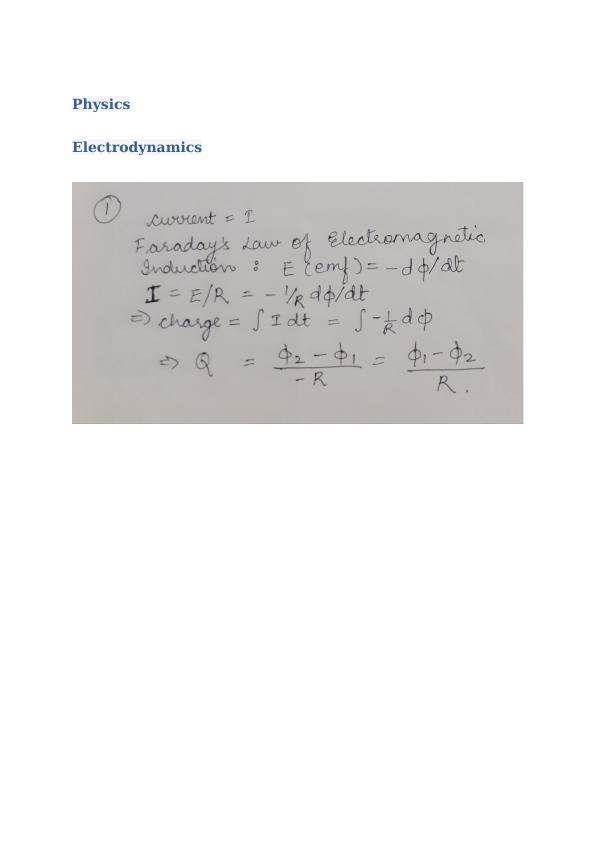 Physics
Electrodynamics
1
current = I
Faraday's Law of Electromagnetic
Induction : E (emf) = - dϕ/dt
I = E/R = - 1/R dϕ/dt
=> charge = ∫ I dt = ∫ - 1/R dϕ
=> Q = ϕ2 - ϕ1 / - R = ϕ1 - ϕ2 / R.